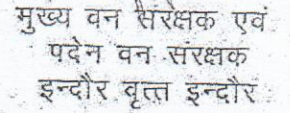 मुख्य वन संरक्षक एवं
पदेन वन संरक्षक
इन्दौर वृत्त इन्दौर